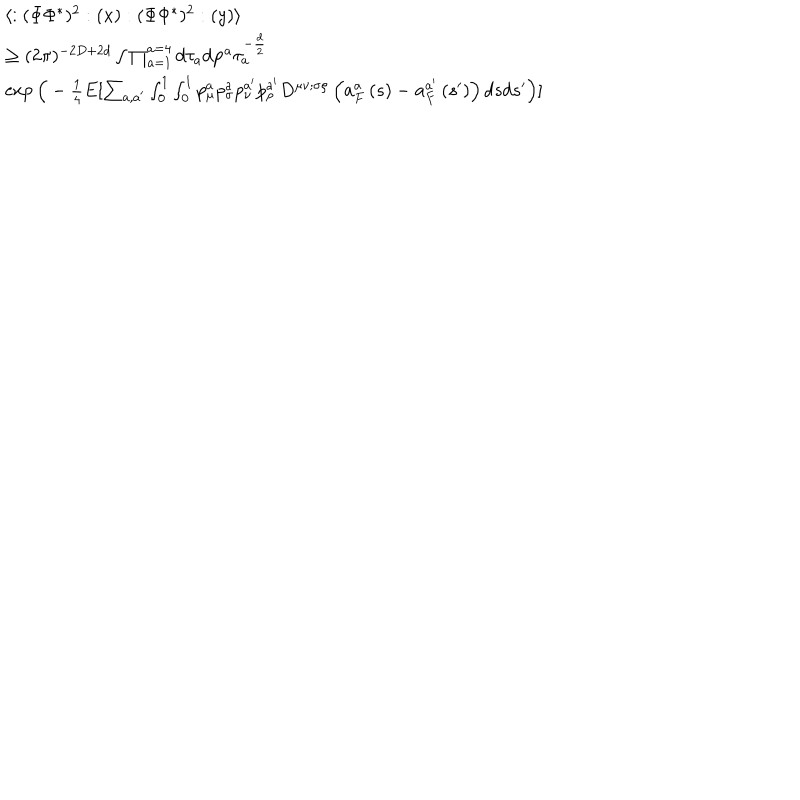 ⟨: (ΦΦ*)² : (x) : (ΦΦ*)² : (y)⟩
≥ (2π)^{-2D+2d} ∫ ∏_{a=1}^{a=4} dτ_a dp^a τ_a^{-\frac{d}{2}}
exp ( - \frac{1}{4} E[∑_{a,a'} ∫_0^1 ∫_0^1 p_μ^a p_σ^a p_ν^{a'} p_ρ^{a'} D^{μν;σρ} ( a_F^a (s) - a_F^{a'} (s') ) ds ds' )]